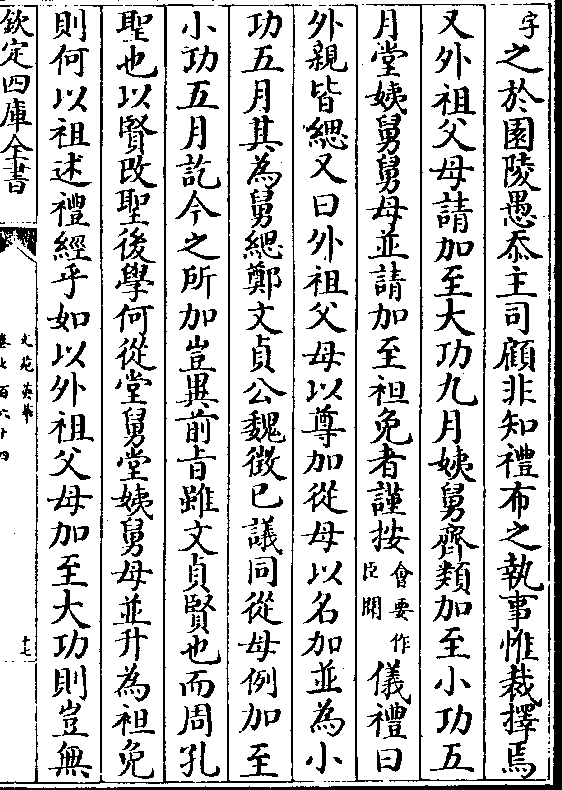 字之於園陵愚忝主司顧非知禮布之執事惟裁擇焉
又外祖父母請加至大功九月姨舅齊類加至小功五
月堂姨舅舅母並請加至袒免者謹按會要作臣聞儀禮曰
外親皆緦又曰外祖父母以尊加從母以名加並為小
功五月其為舅緦鄭文貞公魏徵已議同從母例加至
小功五月訖今之所加豈異前㫖雖文貞賢也而周孔
聖也以賢改聖後學何從堂舅堂姨舅母並升為袒免
則何以祖述禮經乎如以外祖父母加至大功則豈無
欽定四庫全書
文苑英華
卷七百六十四
十七